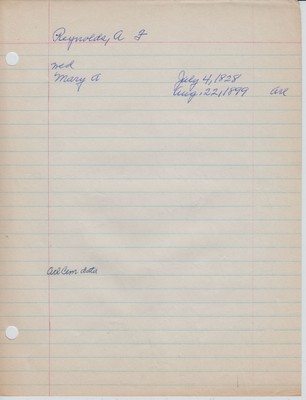 Reynolds, A F
wed
Mary A July 4, 1828
Aug. 22, 1899 Arl
Arl Cem data